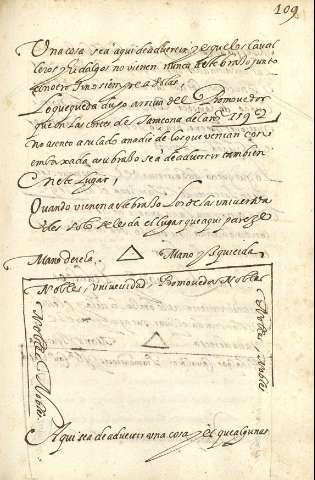 109
Una cosa se a aqui de advertir y es que los Caval
leros y hidalgos no vienen nunca a este braço junto
el uno tras sino siempre a solas,
Lo que queda dicho arriva del Promovedor
que en las cortes de Tamarite del año 119
no asento a su lado a nadie de los que venian con
embaxada, a su braço se a de advertir tambien
en este lugar,
Quando vienen a este braço Los de las universida
des solo se les da el lugar que aqui pareze
Mano derecha
Mano yzquierda
Nobles, universidad Promovedor Nobles
Nobles Nobles
Nobles, Nobles
Aqui se a de advertir una cosa y es que algunas